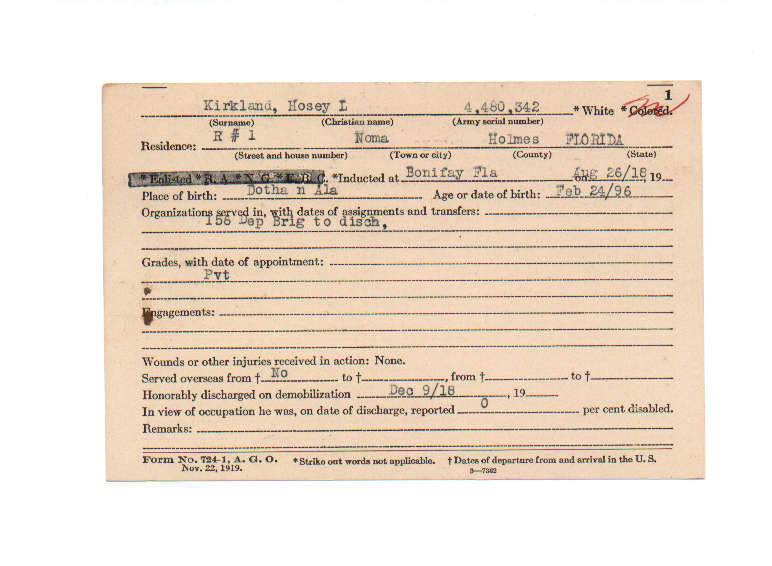 1
Kirkland, Hosey L 4,480,342 * White * Colored.
(Surname) (Christian name) (Army serial number)
Residence: R # 1 Noma Holmes FLORIDA
(Street and house number) (Town or city) (County) (State)
* Enlisted * R. A. * N. G. * E. R. C. *Inducted at Bonifay Fla on Aug 26/18, 19
Place of birth: Dotha n Ala Age or date of birth: Feb 24/96
Organizations served in, with dates of assignments and transfers:
158 Dep Brig to disch,
Grades, with date of appointment:
Pvt
Engagements:
Wounds or other injuries received in action: None.
Served overseas from † No to †, from † to †
Honorably discharged on demobilization Dec 9/18, 19
In view of occupation he was, on date of discharge, reported 0 per cent disabled.
Remarks:
Form No. 724-1, A. G. O. *Strike out words not applicable. † Dates of departure from and arrival in the U. S.
Nov. 22, 1919. 3—7362